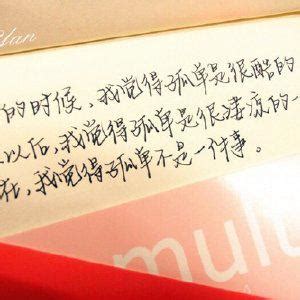 的时候，我觉得孤单是很酷的
以后，我觉得孤单是很凄凉的一
在，我觉得孤单不是一个事。
mul